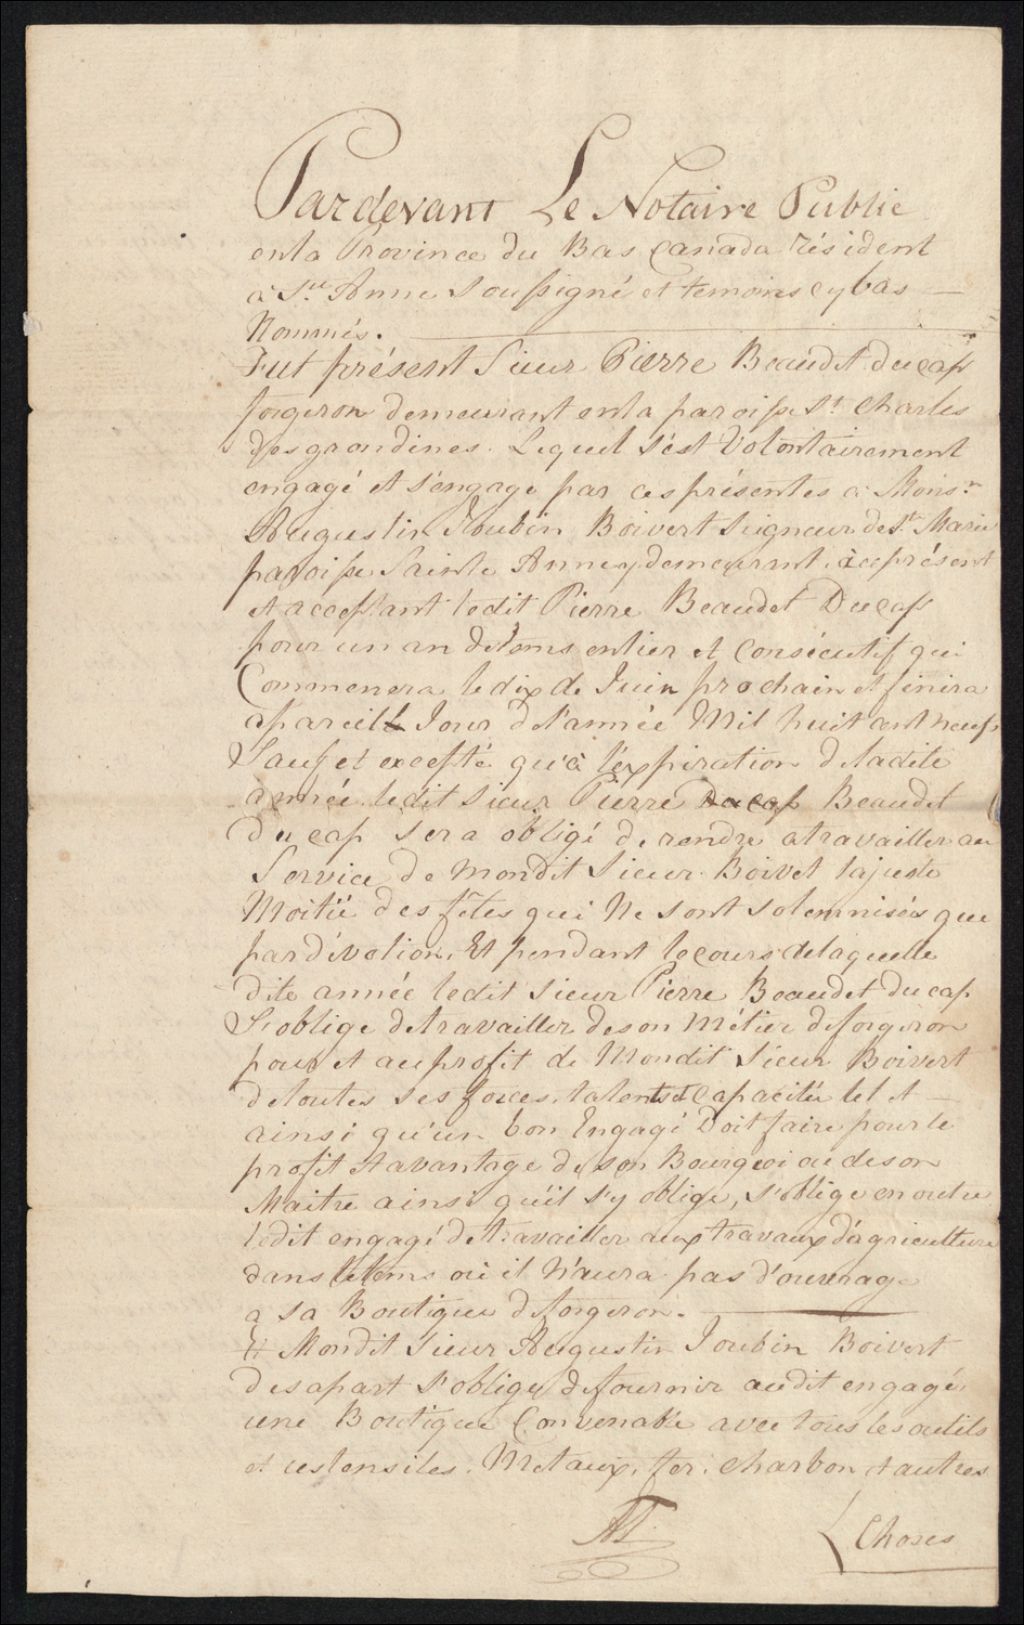 Pardevant Le Notaire Public
en la Province du Bas Canada résident
à Ste. Anne Soussigné et temoins cy bas
Nommés.
Fut présent Sieur Pierre Beaudet ducap
forgeron demeurant en la paroisse St. Charles
des grondines. Lequel s'est Volontairement
engagé et s'engage par ces présentes à Monsr.
Augustin Joubin Boivert Seigneur de Ste. Marie
paroisse Sainte Anne y demeurant, à ce présent
et acceptant ledit Pierre Beaudet Ducap
pour un an de tems entier et Consécutif qui
Commencera le dix de Juin prochain et finira
à pareille Jour de l'année Mil huit cent neuf
Sauf et excepté qu'à l'expiration de ladite
année ledit Sieur Pierre Ducap Beaudet
du cap sera obligé de rendre à travailler au
Service de mondit Sieur Boivet la juste
Moitié des fêtes qui Ne sont solemnisées que
par dévotion. Et pendant le cours de laquelle
dite année ledit Sieur Pierre Beaudet du cap
S'oblige de travailler de son Métier de forgeron
pour et au profit de Mondit Sieur Boivert
de toutes ses forces, talents et capacités tel et
ainsi qu'un bon Engagé Doit faire pour le
profit et avantage de son Bourgeoi ou de son
Maitre ainsi qu'il s'y oblige, s'oblige en outre
ledit engagé de travailler aux travaux d'agriculture
dans le tems où il N'aura pas d'ouvrage
a sa Boutique de forgeron.
Et Mondit Sieur Augustin Joubin Boivert
de sa part s'oblige de fournir audit engagé
une Boutique Convenable avec tous les outils
et ustensiles, Metaux, fer, charbon et autres
Choses